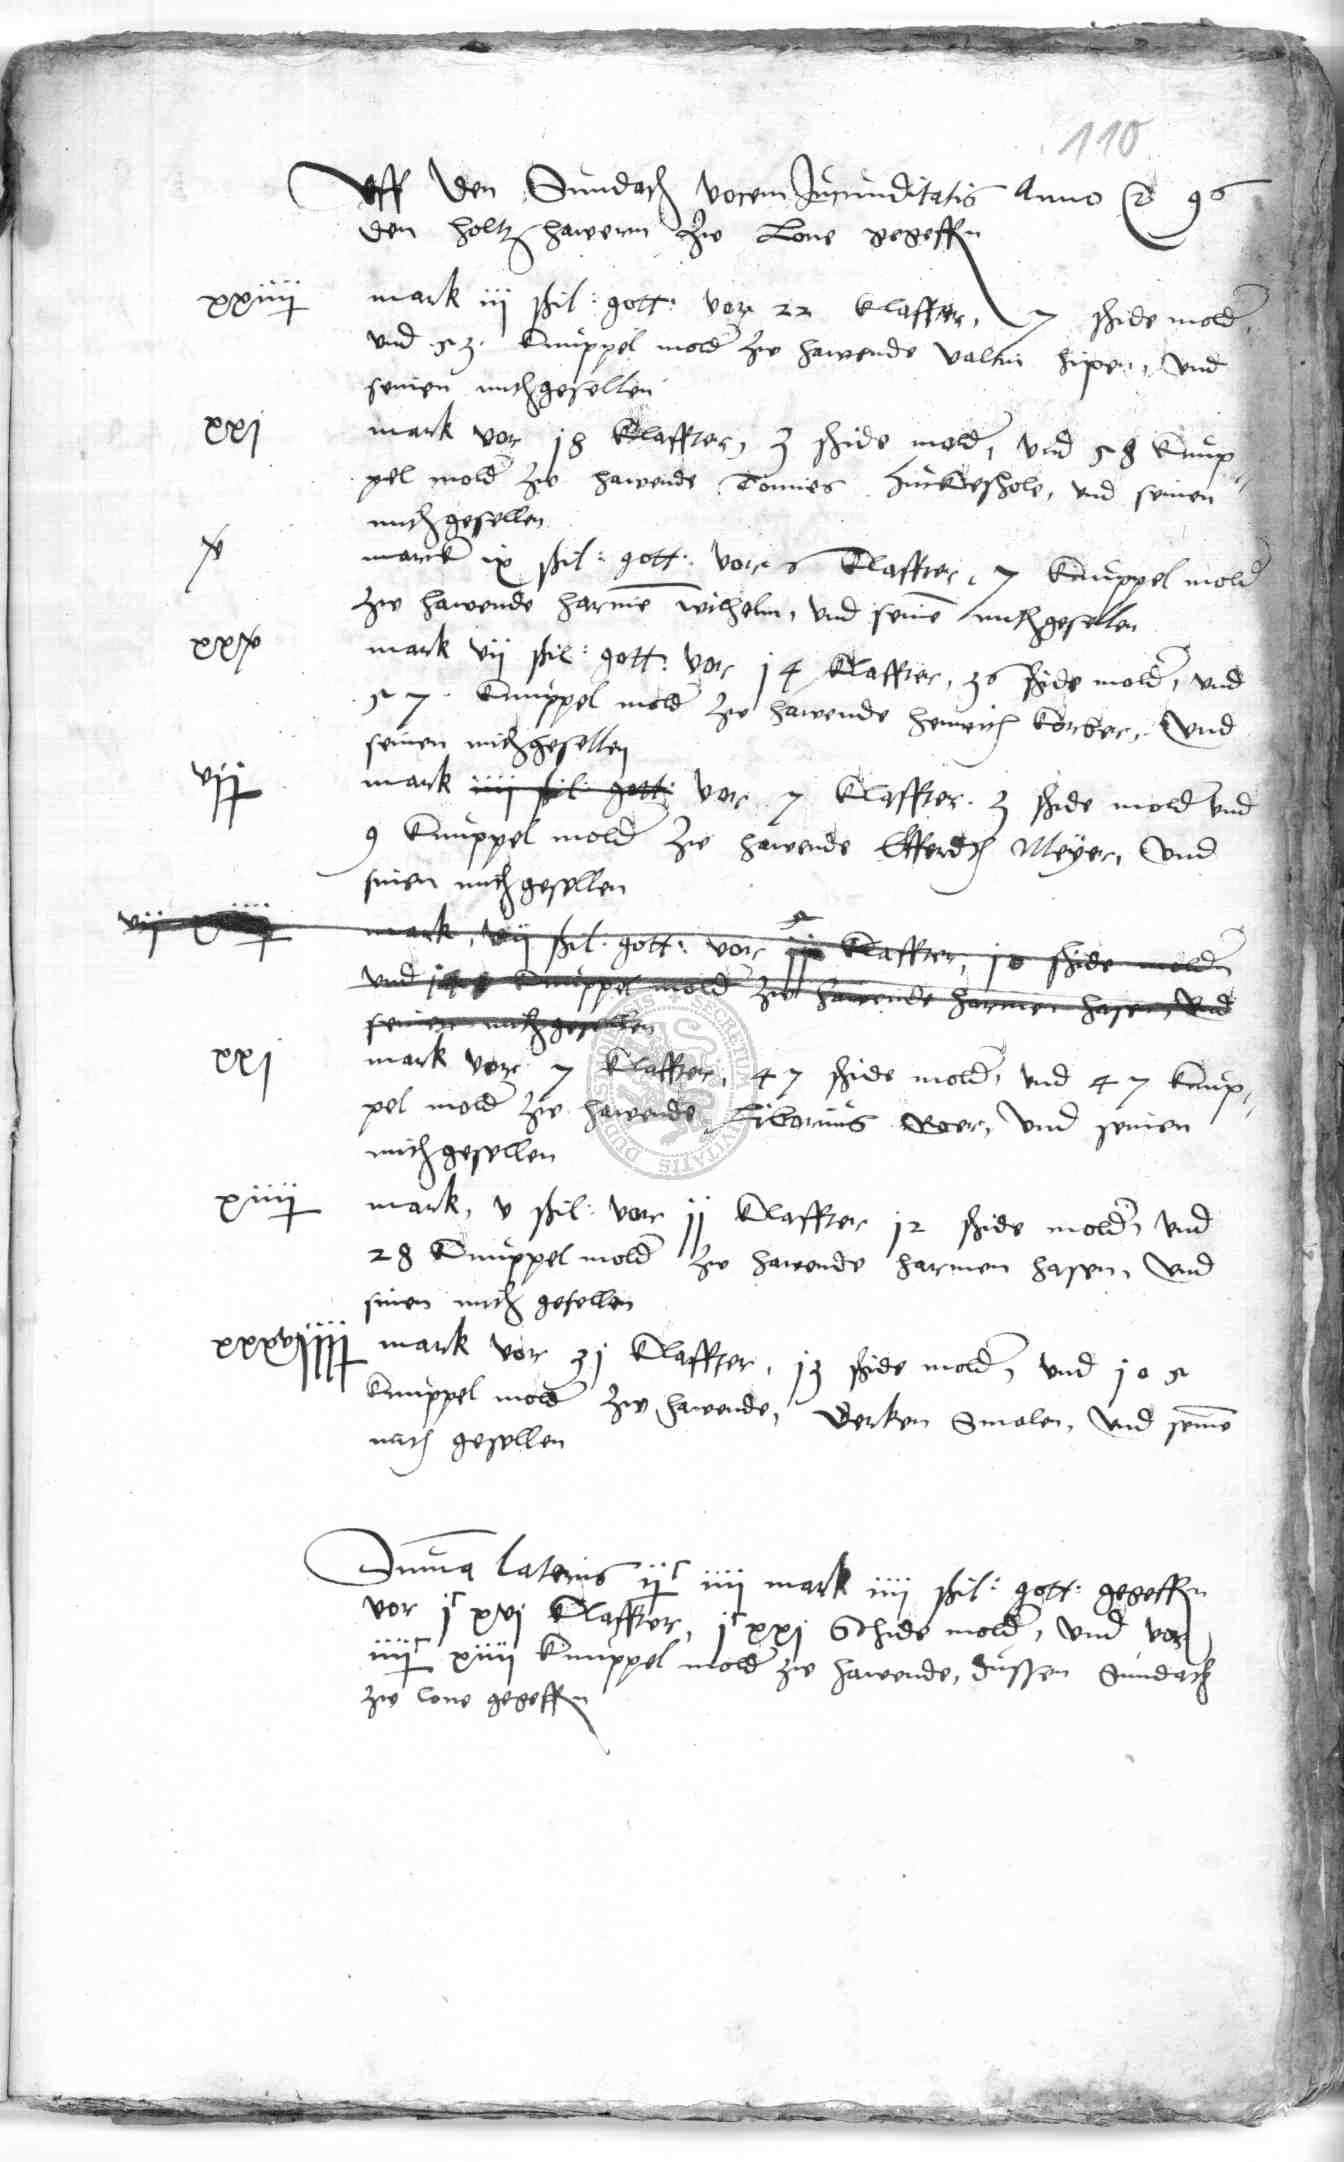 110
Uff den Sundach vocem Jucunditatis Anno 96
den holtz hawern zw Lone gegeffn
xxiiii mark iii ßil: gott: vor 22 Klaffter, 7 shide mold,
vnd 53 Knuppel mold zw hawende valtin hipen, vnd
seinen mithgesellen
xxi mark vor 18 Klaffter, 3 shide mold, vnd 58 Knup-
pel mold zw hawende Tonnies, vnd seinen
mithgesellen
x marck ix ßil: gott: vor 6 Klaffter, 7 Knuppel mold
zw hawende harme wilhelm, vnd seine mithgesellen
xxx mark vii ßil: gott: vor 14 Klaffter, 36 shide mold, vnd
57 Knuppel mold zw hawende heinrich Korber, vnd
seinen mithgesellen
vii mark iiii ßil: gott: vor 7 Klaffter 3 shide mold vnd
9 Knuppel mold zw hawende Efferdh Meyer, vnd
sinen mithgesellen
vii mark, vii ßil: gott: vor Klaffter, 10 shide mold
vnd Knuppel mold zw hawende harmen hasen, vnd
seinen mithgesellen
xxi mark vor 7 Klaffter, 47 shide mold, vnd 47 Knup-
pel mold zw hawende Liborius Roer, vnd seinen
mithgesellen
xiiii mark, v ßil: vor jj Klaffter 12 shide mold, vnd
28 Knuppel mold zw hawende harmen hasen, vnd
sinen mith gesellen
xxxviiii mark vor 31 Klaffter, 13 shide mold, vnd 105
Knuppel mold zw hawende, Derken Smolen, vnd seine
mith gesellen
Suma lateris iic iiii mark iiii ßil: gott: gegeffn
vor jc xvi Klaffter, jc xxj Schide mold, vnd vor
iiiic xiiii Knuppel mold zw hawende, dussen Sundach
zw lone gegeffn